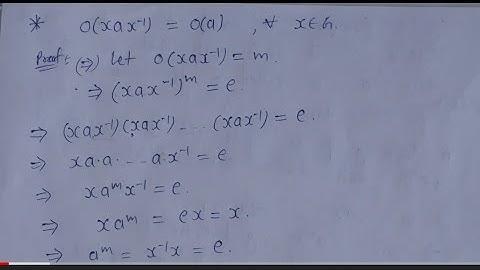 * O(xax⁻¹) = O(a) , ∀ x∈G.
Proof: (⇒) let O(xax⁻¹) = m.
⇒ (xax⁻¹)ᵐ = e.
⇒ (xax⁻¹)(xax⁻¹) --- (xax⁻¹) = e.
⇒ xa·a· --- a·x⁻¹ = e.
⇒ xaᵐx⁻¹ = e.
⇒ xaᵐ = ex = x.
⇒ aᵐ = x⁻¹x = e.